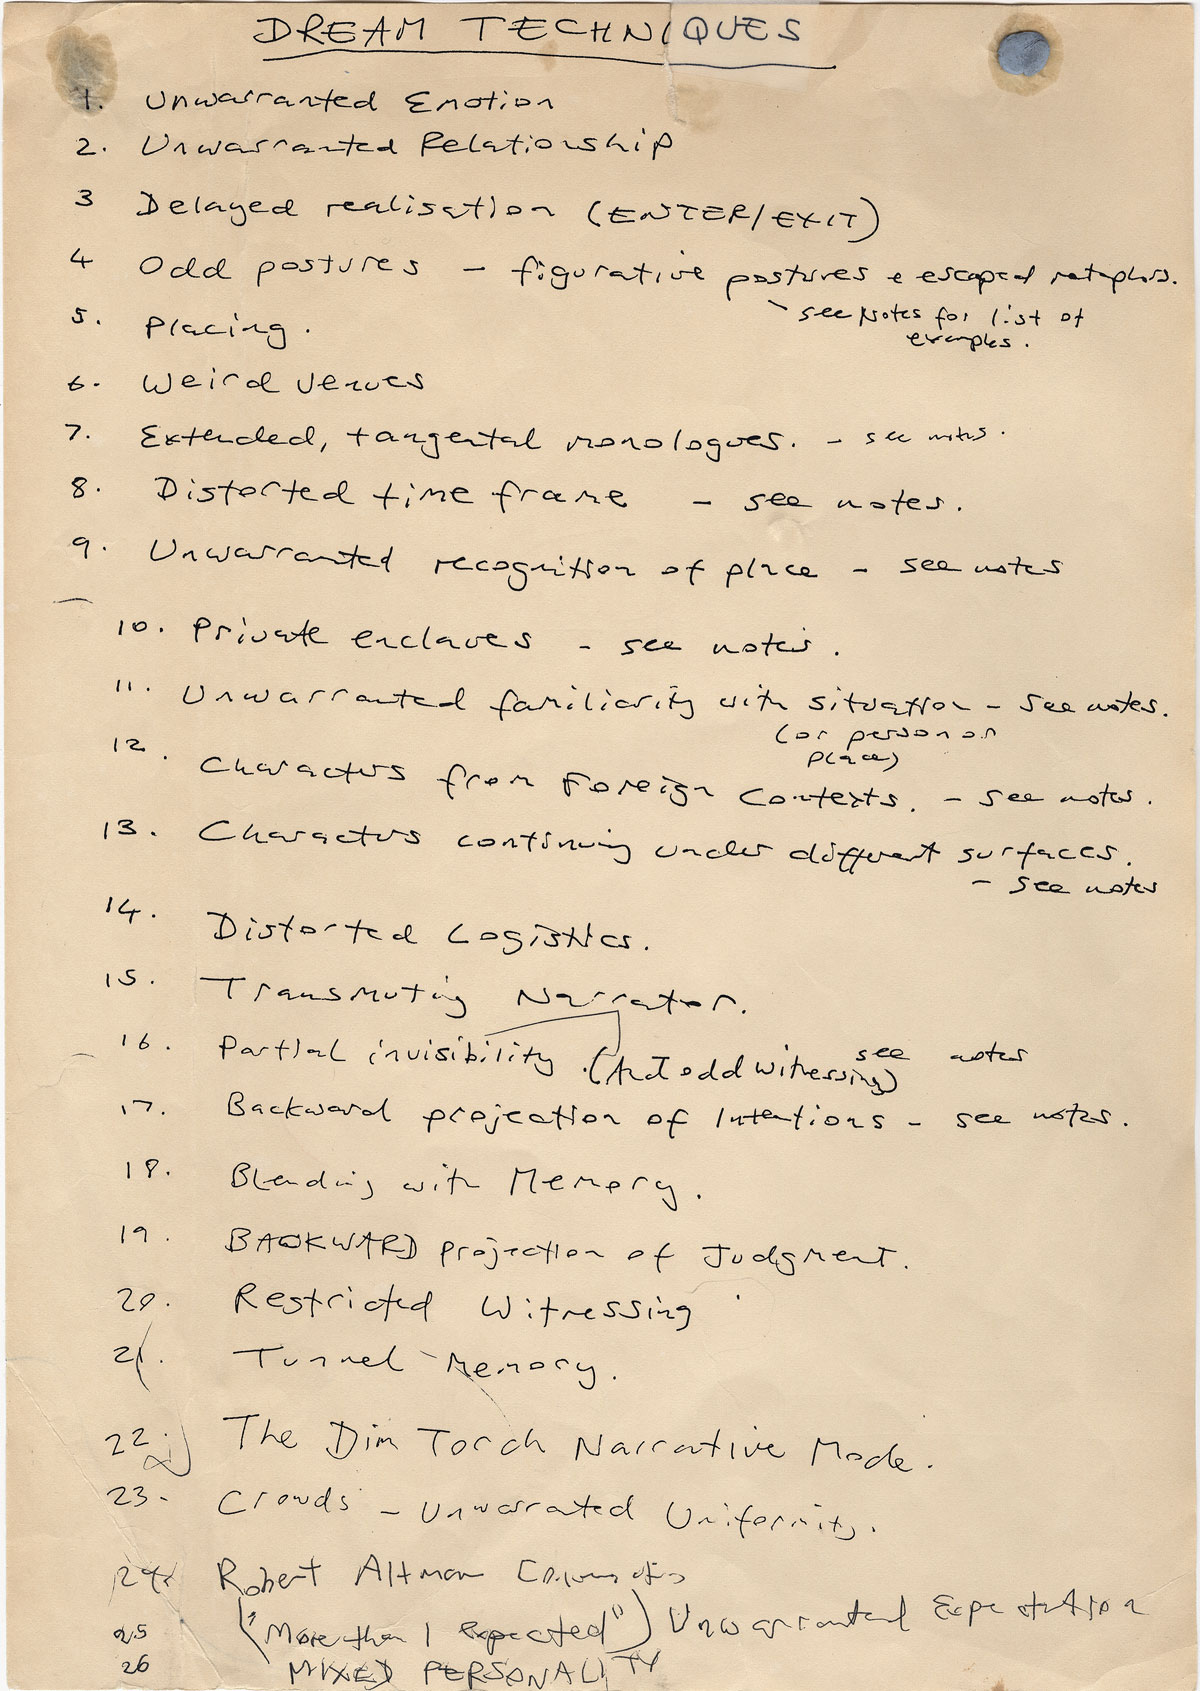 DREAM TECHNIQUES
1. Unwarranted Emotion
2. Unwarranted Relationship
3 Delayed realisation (ENTER/EXIT)
4 Odd postures - figurative postures & escaped metaphors.
- see Notes for list of
examples.
5. Placing.
6. Weird Venues
7. Extended, tangental monologues. - see notes.
8. Distorted time frame - see notes.
9. Unwarranted recognition of place - see notes
10. Private enclaves - see notes.
11. Unwarranted familiarity with situation - see notes.
(or person or
place)
12. Characters from Foreign Contexts. - see notes.
13. Characters continuing under different surfaces.
- see notes
14. Distorted Logistics.
15. Transmuting Narrator.
16. Partial invisibility. (And odd witnessing) see notes
17. Backward projection of Intentions - see notes.
18. Blending with Memory.
19. BACKWARD projection of Judgment.
20. Restricted Witnessing
21. Tunnel Memory.
22. The Dim Torch Narrative Mode.
23. Crowds - Unwarrated Uniformity.
24. Robert Altman
25 ("More than 1 Expected") Unwarranted Expectation
26 MIXED PERSONALITY